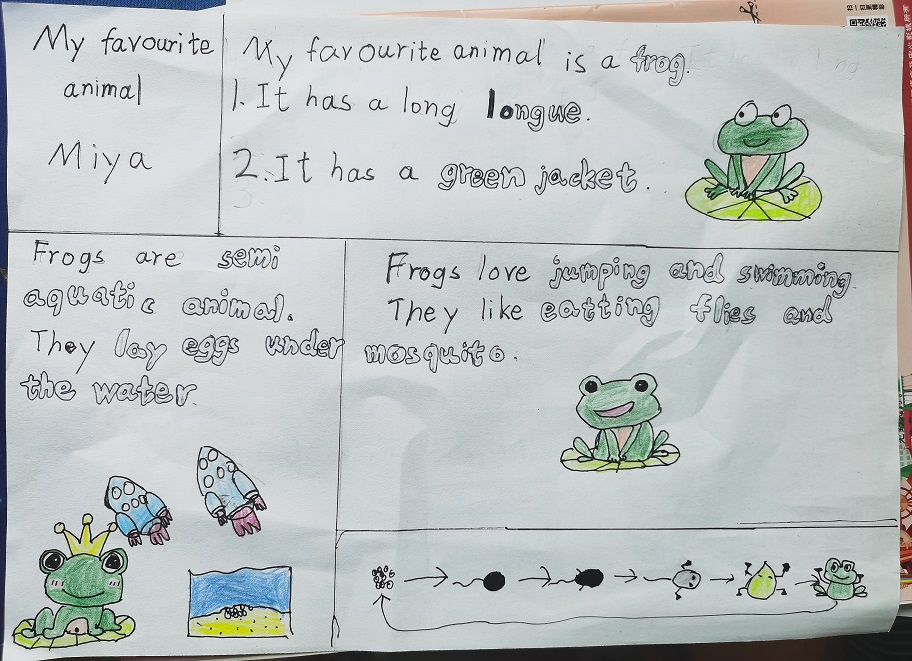 My favourite
animal
Miya
My favourite animal is a frog.
1. It has a long longue.
2. It has a green jacket.
Frogs are semi
aquatic animal.
They lay eggs under
the water.
Frogs love jumping and swimming.
They like eatting flies and
mosquito.